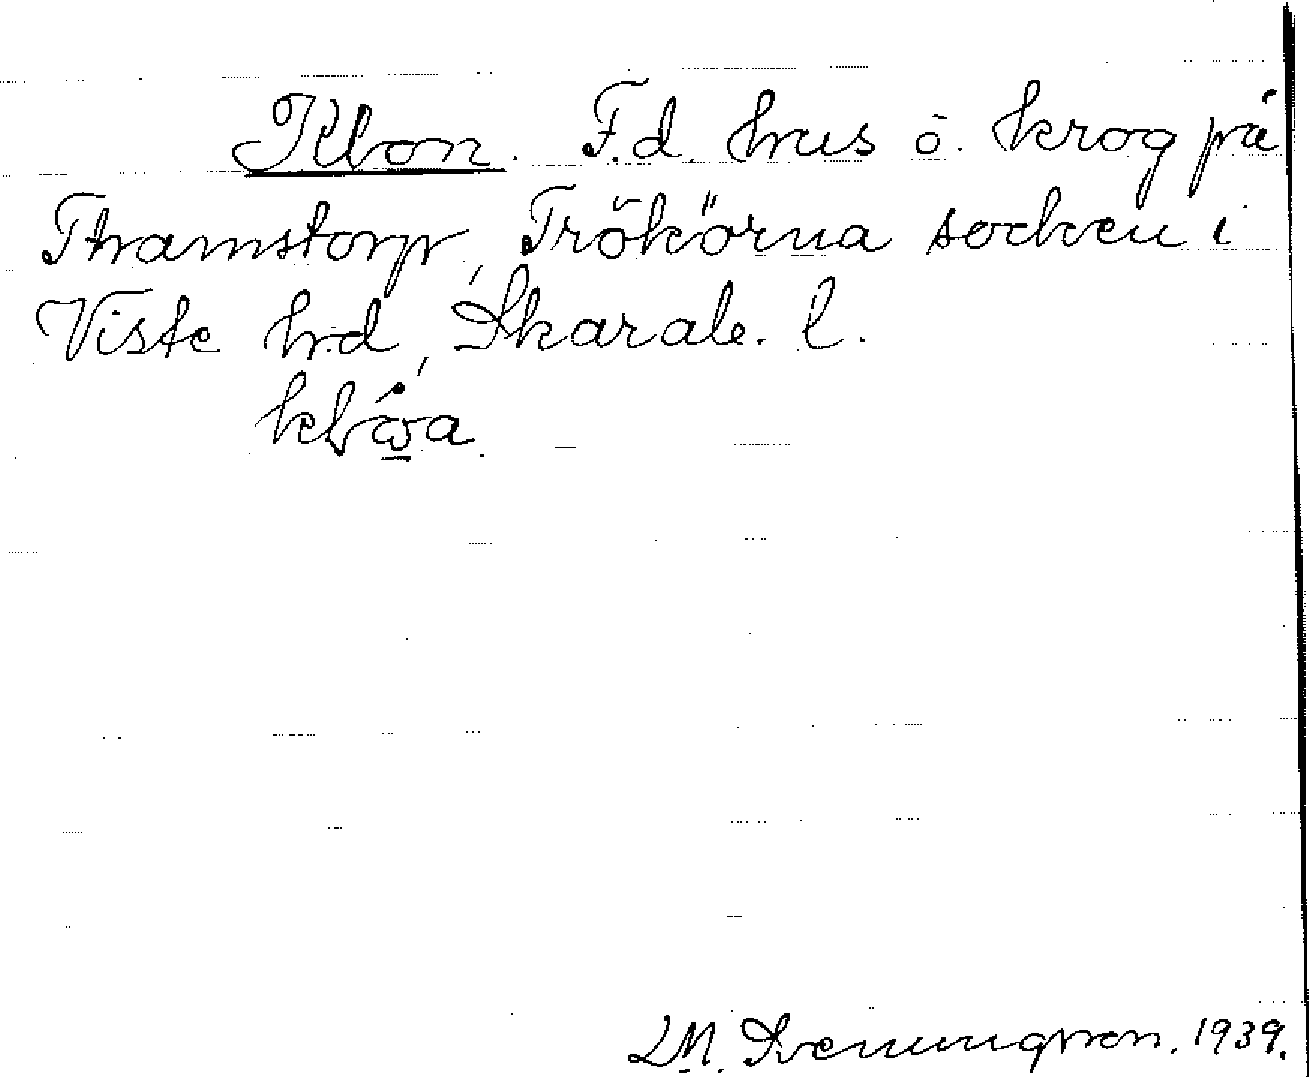 Klvan. F.d. hus o. krog på
Thramstorp, Trökörna socken i
Viste hd, Skarab. l.
klva
LM. Svenungsson. 1939.